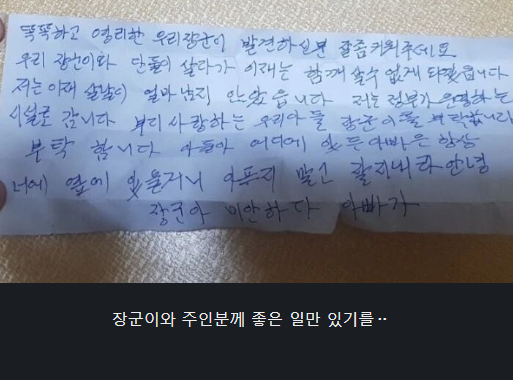 똑똑하고 영리한 우리장군이 발견하신분 잘좀키워주세요
우리 장군이와 단둘이 살다가 이재는 함께 살수 없게 돼였읍니다
저는 이재 살날이 얼마 남지 안았읍니다 저는 정부가 운영하는
시설로 갑니다 부디 사랑하는 우리아들 장군이를 부탁합니다
부탁 합니다 아들아 어디에 있든 아빠은 항상
너에 옆에 있을거니 아프지 말고 잘지내라 안녕
장군아 미안하다 아빠가
장군이와 주인분께 좋은 일만 있기를··